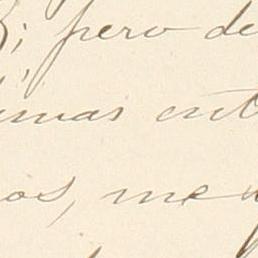 ; pero de
imas ento
os, me